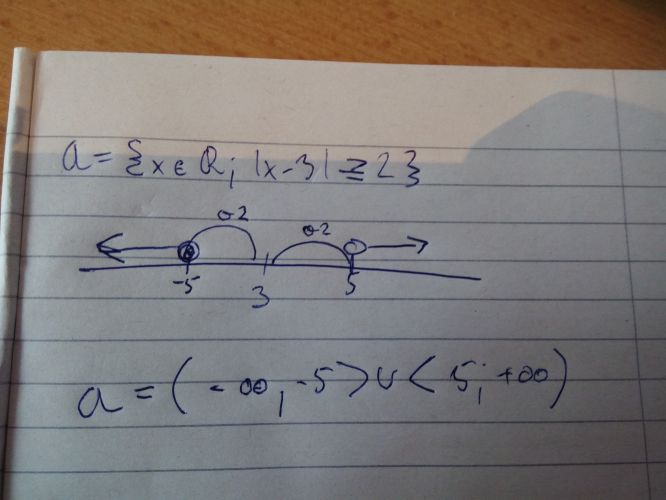 a = {x ∈ R; |x-3| ≥ 2}
o2 o2
-5 3 5
a = (-∞, -5> ∪ <5; +∞)